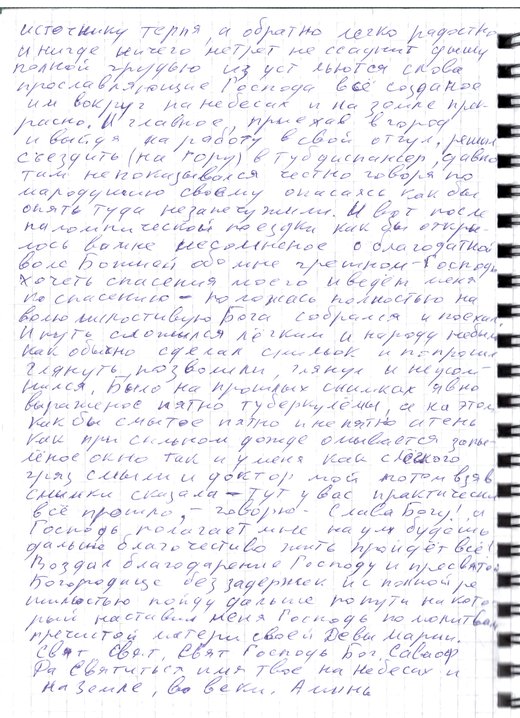 источнику терпя, а обратно легко радостно
и нигде ничего нетрёт не ссаднит дышу
полной грудью из уст льются слова
прославляющие Господа всё созданое
им вокруг на небесах и на земле пре-
расно. И главное, приехав в город
и выйдя на работу в свой отгул, решил
съездить (на гору) в Тубдиспансер, давно
там непоказывался честно говоря по
малодушию своему опасаясь как бы
опять туда незапечужили. И вот после
паломнической поездки как бы откры-
лось во мне несомненое о благодатной
воле Божией обо мне грешном - Господь
хочеть спасения моего и ведёт меня
ко спасению - положась полностью на
волю милостивую Бога собрался и поехал,
И путь сложился лёгким и народу небыло
как обычно сделал снимок и попросил
глянуть, позволили, глянул и неусом-
нился, Было на прошлых снимках явно
выраженое пятно туберкулёмы, а на этом
как бы смытое пятно и не пятно а тень
как при сильном дожде омывается запы-
лёное окно так и у меня как с окного
грязь смыли и доктор мой потом взяв
снимки сказала - тут у вас практически
всё прошло, - говорю - Слава Богу! и
Господь полагает мне на ум будешь
дальше благочестиво жить пройдёт всё!
Воздал благодарение Господу и пресвятой
Богородице без задержек и с полной ре
шимостью пойду дальше по пути на кото
рый наставил меня Господь по молитвам
пречистой матери своей Девы Марии.
Свят Свят, Свят Господь Бог Саваоф
Да Святиться имя твое на Небесах и
на Земле, во веки. Аминь